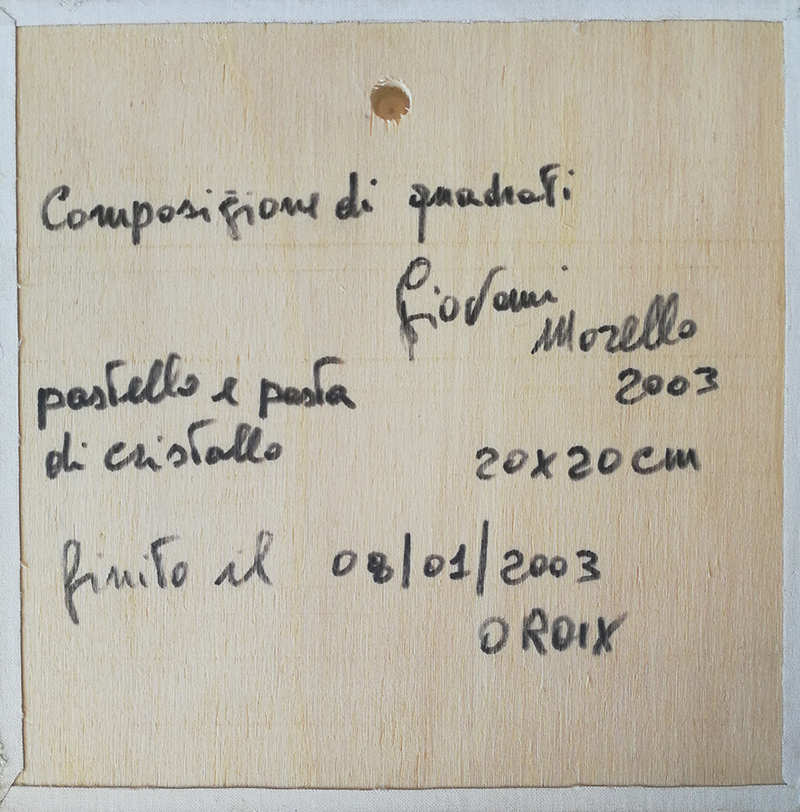 Composizione di quadrati
Giovanni
Morello
2003
pastello e pasta
di cristallo
20x20 cm
finito il 08/01/2003